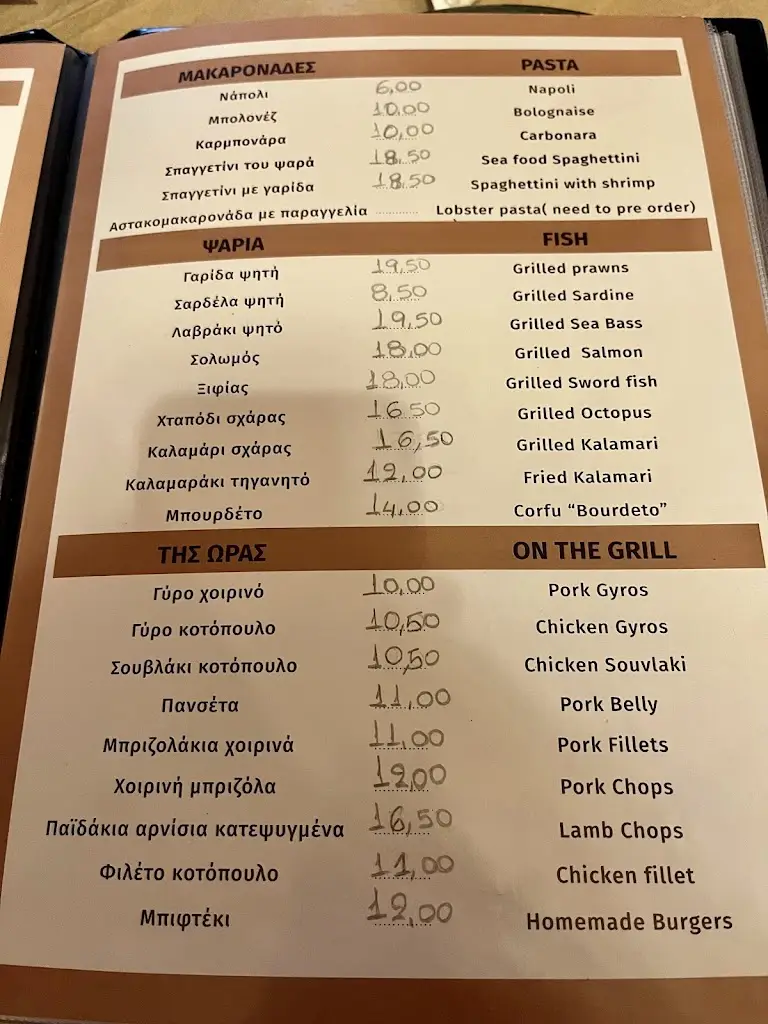 ΜΑΚΑΡΟΝΑΔΕΣ PASTA
Νάπολι 6,00 Napoli
Μπολονέζ 10,00 Bolognaise
Καρμπονάρα 10,00 Carbonara
Σπαγγετίνι του ψαρά 18.50 Sea food Spaghettini
Σπαγγετίνι με γαρίδα 18.50 Spaghettini with shrimp
Αστακομακαρονάδα με παραγγελία ............ Lobster pasta( need to pre order)
ΨΑΡΙΑ FISH
Γαρίδα ψητή 19,50 Grilled prawns
Σαρδέλα ψητή 8,50 Grilled Sardine
Λαβράκι ψητό 19,50 Grilled Sea Bass
Σολωμός 18,00 Grilled Salmon
Ξιφίας 18,00 Grilled Sword fish
Χταπόδι σχάρας 16 50 Grilled Octopus
Καλαμάρι σχάρας 16,50 Grilled Kalamari
Καλαμαράκι τηγανητό 12,00 Fried Kalamari
Μπουρδέτο 14,00 Corfu “Bourdeto”
ΤΗΣ ΩΡΑΣ ON THE GRILL
Γύρο χοιρινό 10,00 Pork Gyros
Γύρο κοτόπουλο 10,50 Chicken Gyros
Σουβλάκι κοτόπουλο 10,50 Chicken Souvlaki
Πανσέτα 11,00 Pork Belly
Μπριζολάκια χοιρινά 11,00 Pork Fillets
Χοιρινή μπριζόλα 12,00 Pork Chops
Παϊδάκια αρνίσια κατεψυγμένα 16,50 Lamb Chops
Φιλέτο κοτόπουλο 11,00 Chicken fillet
Μπιφτέκι 12,00 Homemade Burgers